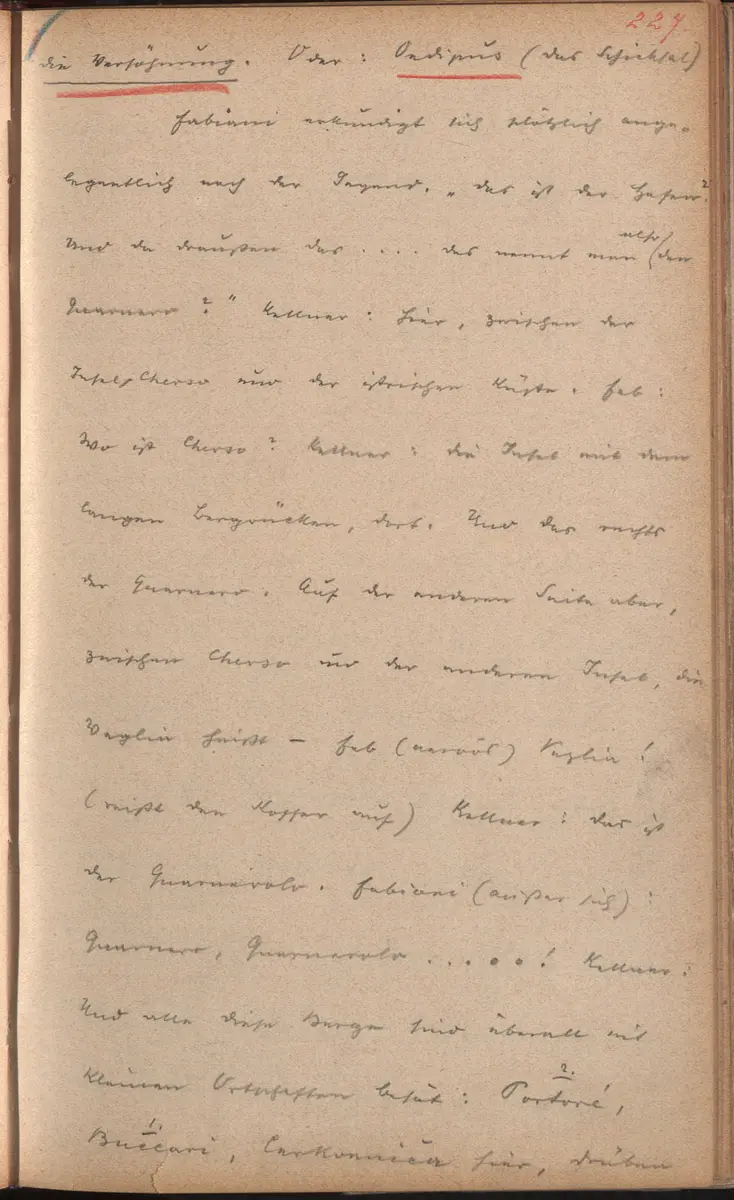 227.
die Versöhnung. Oder: Oedipus (das Schicksal)
Fabiani erkundigt sich plötzlich ange-
legentlich nach der Gegend. „Das ist der Hafen?
Und da draußen das .... das nennt man also den
Quarnero?" Kellner: Hier, zwischen der
Insel Cherso und der istrischen Küste. Fab:
Wo ist Cherso? Kellner: die Insel mit dem
langen Bergrücken, dort. Und das rechts
der Quarnero. Auf der anderen Seite aber,
zwischen Cherso und der anderen Insel, die
Veglia heißt – Fab (nervös) Veglia!
(reißt den Koffer auf) Kellner: das ist
der Quarnerolo. Fabiani (außer sich):
Quarnero, Quarnerolo .....! Kellner:
Und alle diese Berge sind überall mit
kleinen Ortschaften besät: 2. Portoré,
1. Buccari, Cirkvenica hier, drüben